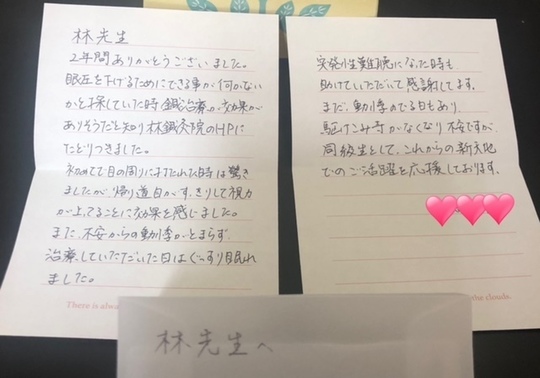 林先生
2年間ありがとうございました。
眼圧を下げるためにできる事が何かない
かと探していた時 鍼治療が効果が
ありそうだと知り林鍼灸院のHPに
たどりつきました。
初めて目の周りに打たれた時は驚き
ましたが、帰り道目がすっきりして視力
が上ってることに効果を感じました。
また、不安からの動悸がとまらず
治療していただいた日はぐっすり眠れ
ました。
There is alwa
突発性難聴になった時も
助けていただいて感謝してます。
まだ、動悸のでる日もあり、
駆けこみ寺がなくなり不安ですが、
同級生として、これからの新天地
でのご活躍を応援しております。
the clouds.
林先生へ